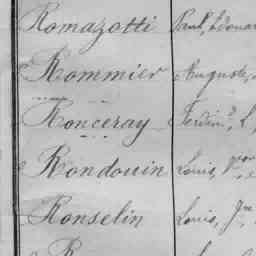 Romazotti Paul, Edouar
Rommier Auguste,
Ronceray Ferdin^d, L
Rondouin Louis,
Ronselin Louis, J^m